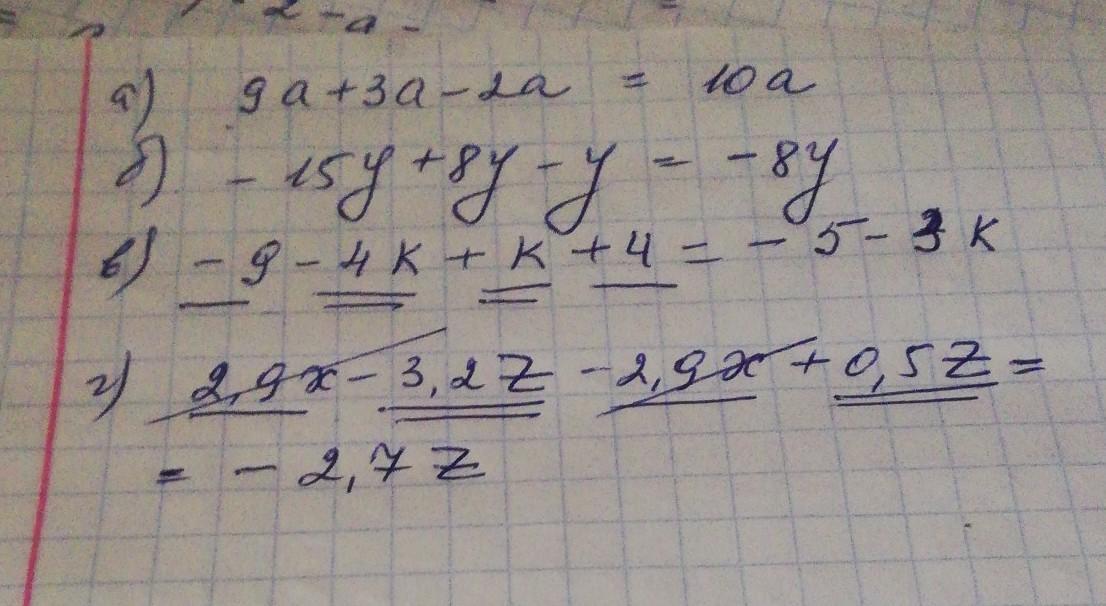 2 - а -
а) 9а + 3а - 2а = 10а
б) - 15y + 8y - y = - 8y
в) - 9 - 4к + к + 4 = - 5 - 3к
г) 2,9x - 3,2z - 2,9x + 0,5z =
= - 2,7z